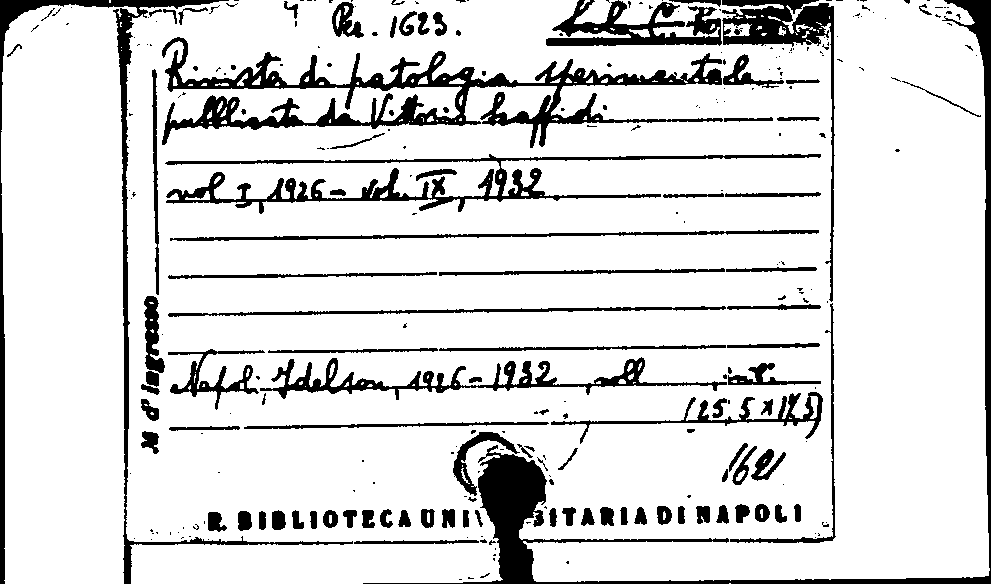 Per. 1623.
Sala C.
Rivista di patologia sperimentale
pubblicata da Vittorio Scaffidi
vol I, 1926 - vol. IX, 1932.
Napoli, Idelson, 1926-1932, voll , in 8°.
(25,5 x 17,5)
1621
N d'ingresso
R. BIBLIOTECA UNIVERSITARIA DI NAPOLI